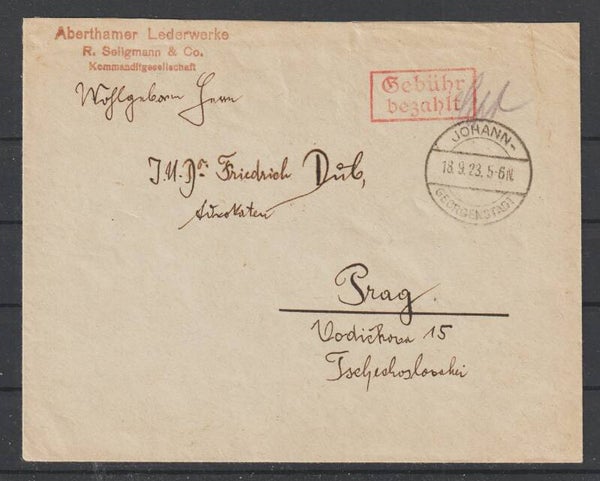 Aberthamer Lederwerke
R. Seligmann & Co.
Kommanditgesellschaft
Gebühr
bezahlt
JOHANN-
18.9.23.5-6N.
GEORGENSTADT
Wohlgeborn Herrn
J.U.Dr. Friedrich Dub,
Advokaten
Prag.
Vodičkova 15
Tschechoslovakei